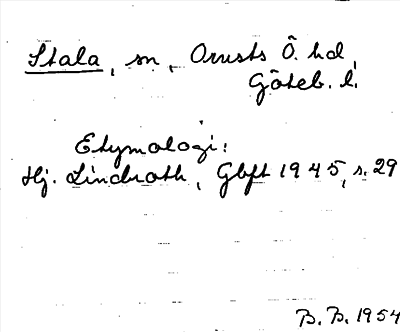 Stala, sn, Orusts Ö. hd,
Göteb. l.
Etymologi:
Hj. Lindroth, Gbft 1945, s. 29
B. B. 1954